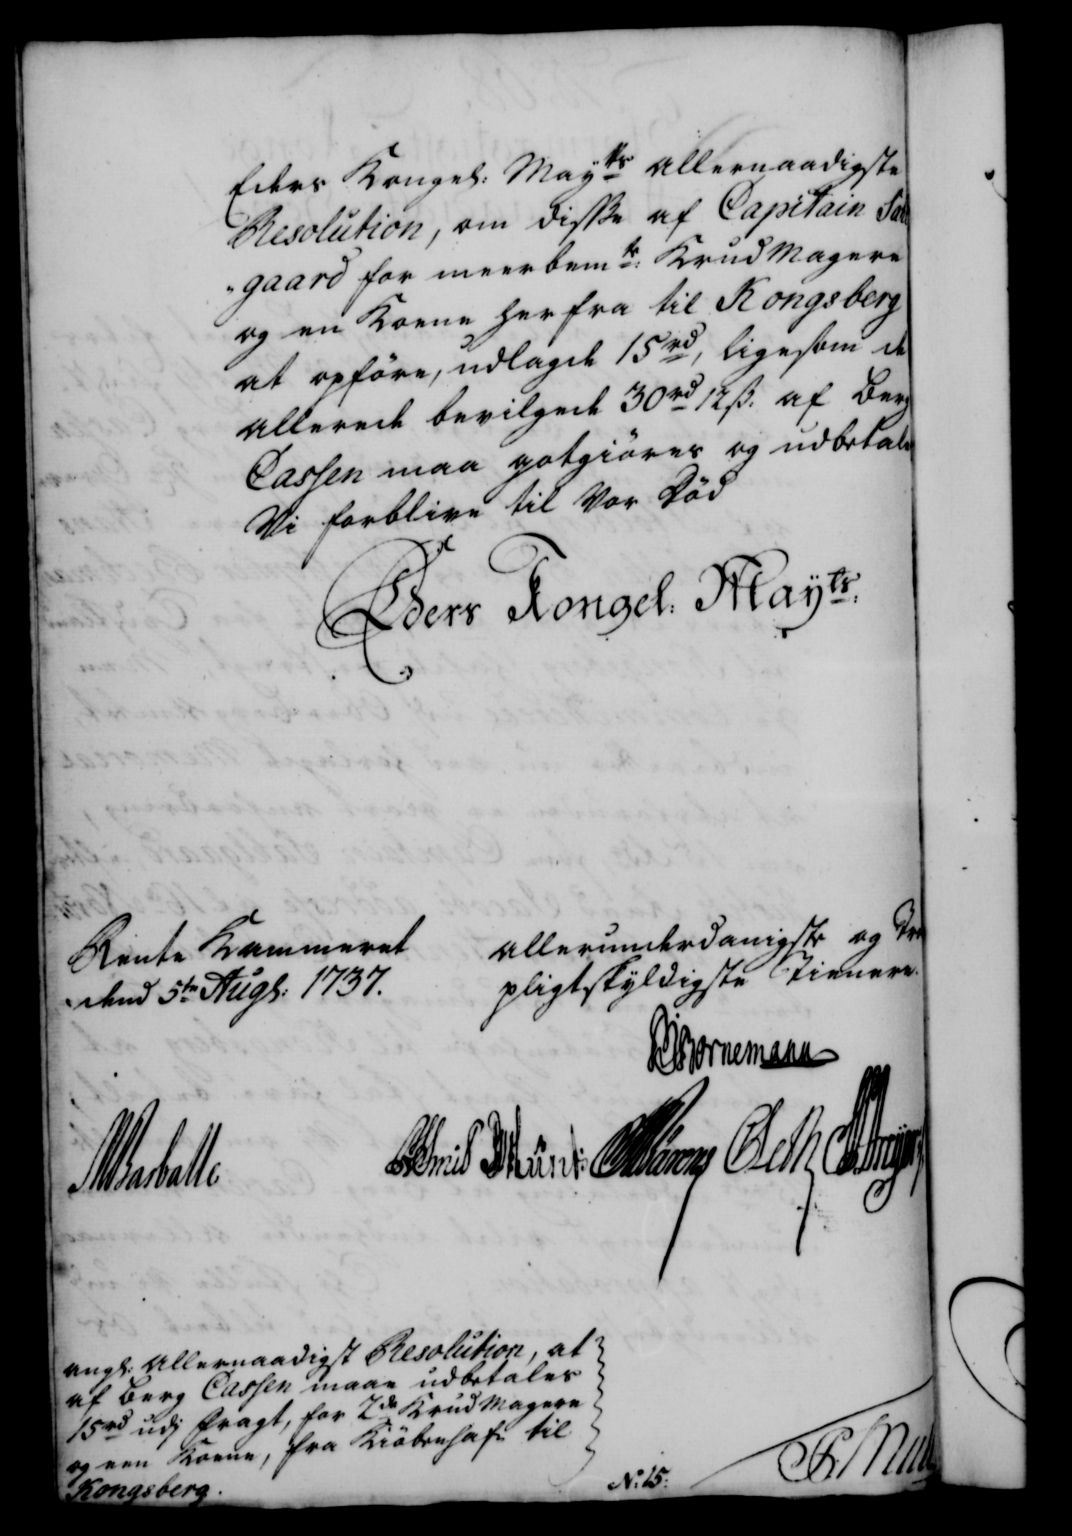 Eders Kongel: Mayts allernaadigste
Resolution, om disse af Capitain
gaard for meerbemte: KrudMagere
og en Koene herfra til Kongsberg
at opföre, udlagde 15rd, ligesom de
allerede bevilgede 30rd 12ß. af Berg
Cassen maa gotgiöres og udbetales
Vi forblive til Vor Död
Eders Kongel: Mayts:
Rente Kammeret
dend 5te Augs: 1737.
allerunderdanigste og
pligtskyldigste Tienere.
Bornemann
Barballe
Oeth
angl: Allernaadigst Resolution, at
af Berg Cassen maae udbetales
15rd udj fragt, for 2de KrudMagere
og een Koene, fra Kiöbenhafn til
Kongsberg.
No: 15.